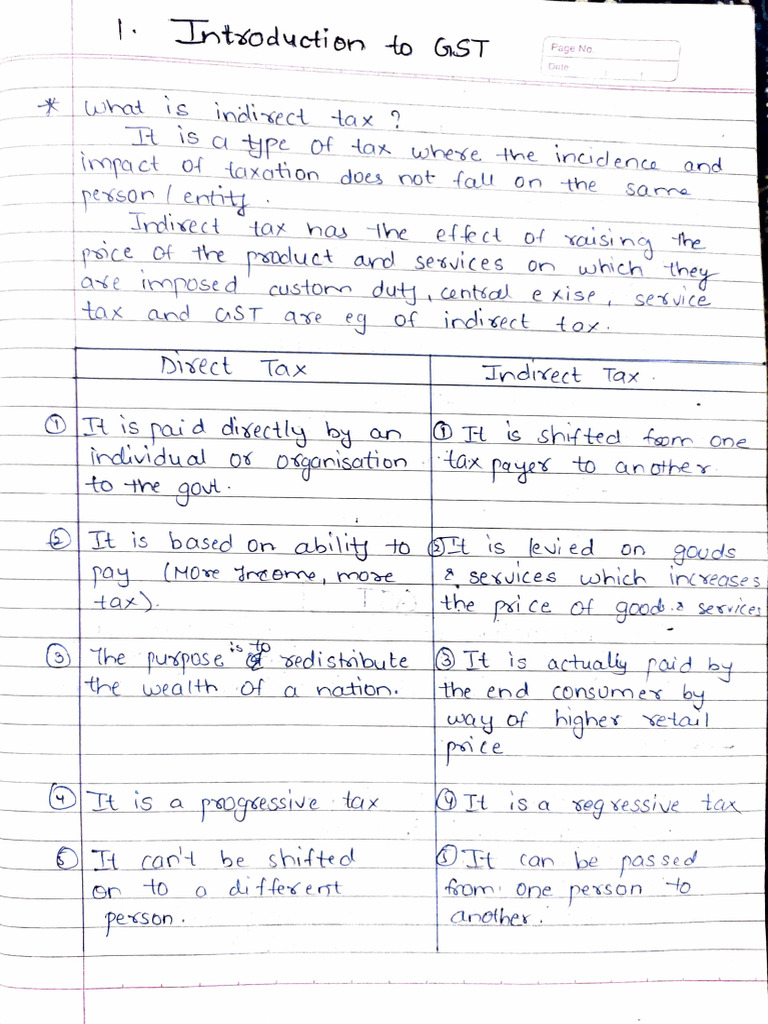 1. Introduction to GST
Page No.
Date
* What is indirect tax ?
It is a type of tax where the incidence and
impact of taxation does not fall on the same
person / entity.
Indirect tax has the effect of raising the
price of the product and services on which they
are imposed custom duty, central exise, service
tax and GST are eg of indirect tax.
Direct Tax
Indirect Tax.
① It is paid directly by an
individual or organisation
to the govt.
① It is shifted from one
tax payer to another.
② It is based on ability to
pay (More Income, more
tax).
② It is levied on goods
& services which increases
the price of goods & services
③ The purpose is to redistribute
the wealth of a nation.
③ It is actually paid by
the end consumer by
way of higher retail
price
④ It is a progressive tax
④ It is a regressive tax
⑤ It can't be shifted
on to a different
person.
⑤ It can be passed
from one person to
another.